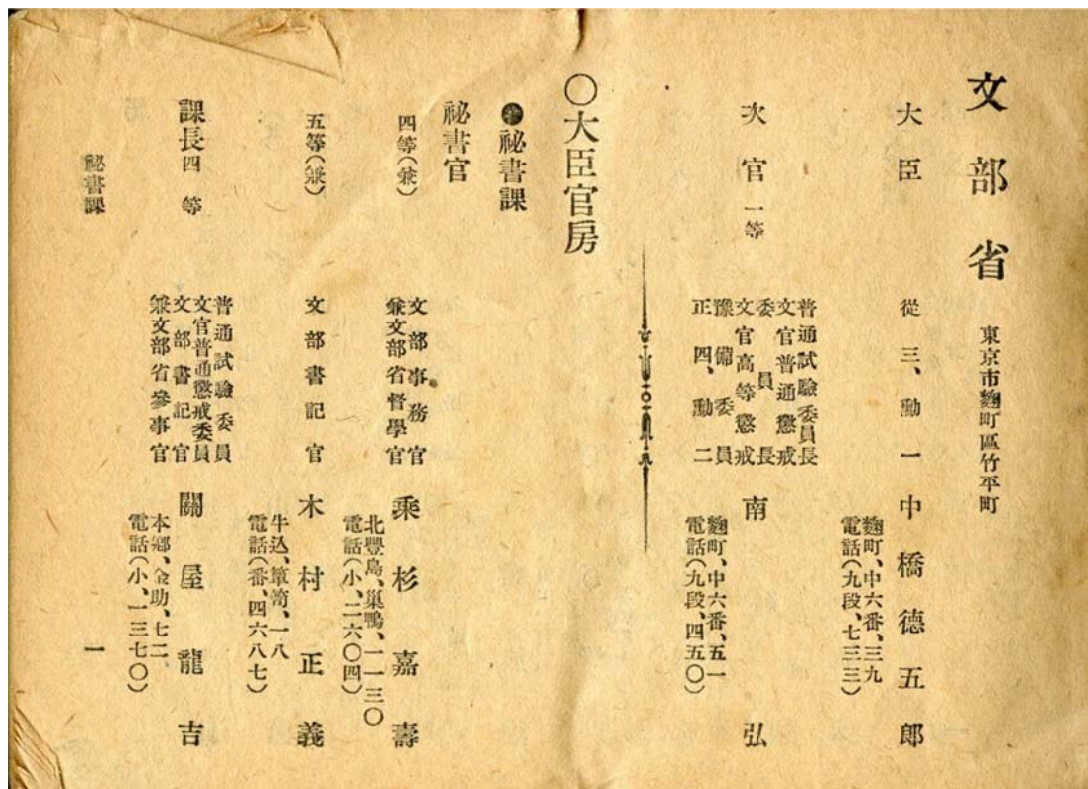 文部省 東京市麴町區竹平町
大臣 從三、勳一 中橋德五郎
麴町、中六番、三九
電話(九段、七三三)
次官 一等
普通試驗委員長
文官普通懲戒
委員長
文官高等懲戒
豫備委員
正四、勳二
南弘
麴町、中六番、五一
電話(九段、四五〇)
〇大臣官房
祕書課
祕書官
四等(兼)
文部事務官
兼文部省督學官
乘杉嘉壽
北豐島、巢鴨、一一三〇
電話(小、二六〇四)
五等(兼) 文部書記官 木村正義
牛込、簞笥、一八
電話(番、四六八七)
課長 四等
普通試驗委員
文官普通懲戒委員
文部書記官
兼文部省參事官
關屋龍吉
本鄕、金助、七二、
電話(小、一三七〇)
祕書課 一